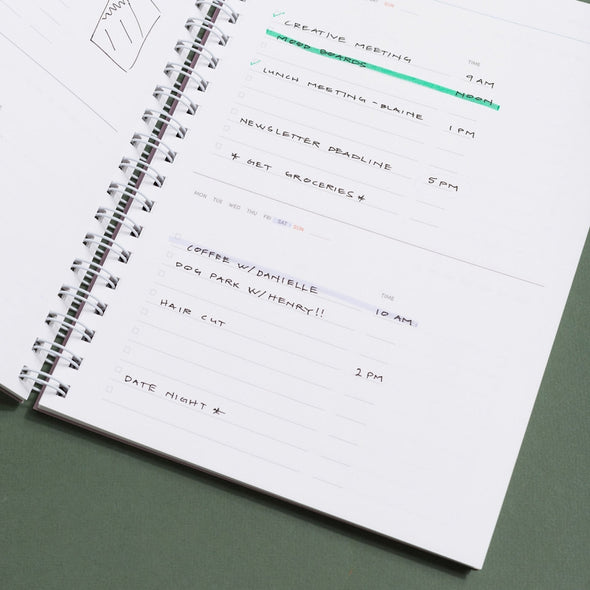 SUN
✓ CREATIVE MEETING
TIME
9 AM
MOOD BOARDS
NOON
✓ LUNCH MEETING - BLAINE
1 PM
NEWSLETTER DEADLINE
5 PM
* GET GROCERIES *
MON TUE WED THU FRI SAT SUN
TIME
COFFEE W/DANIELLE
10 AM
DOG PARK W/HENRY!!
HAIR CUT
2 PM
DATE NIGHT *